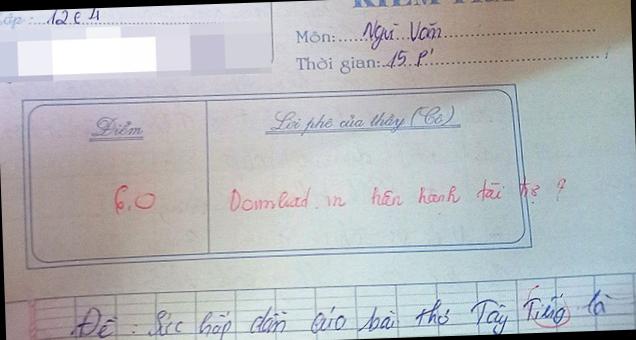 Lớp: 12C4
KIỂM TRA
Môn: Ngữ Văn
Thời gian: 15 P'
Điểm
Lời phê của thầy (Cô)
6.0
Download.vn hân hạnh tài trợ ?
Đề: Sức hấp dẫn của bài thơ Tây Tiếng là